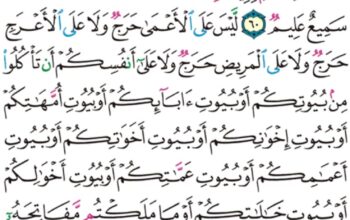 سَمِيعٌ عَلِيمٌ ۝٦٠ لَّيْسَ عَلَى ٱلْأَعْمَىٰ حَرَجٌ وَلَا عَلَى ٱلْأَعْرَجِ
حَرَجٌ وَلَا عَلَى ٱلْمَرِيضِ حَرَجٌ وَلَا عَلَىٰٓ أَنفُسِكُمْ أَن تَأْكُلُوا۟
مِنۢ بُيُوتِكُمْ أَوْ بُيُوتِ ءَابَآئِكُمْ أَوْ بُيُوتِ أُمَّهَٰتِكُمْ
أَوْ بُيُوتِ إِخْوَٰنِكُمْ أَوْ بُيُوتِ أَخَوَٰتِكُمْ أَوْ بُيُوتِ
أَعْمَٰمِكُمْ أَوْ بُيُوتِ عَمَّٰتِكُمْ أَوْ بُيُوتِ أَخْوَٰلِكُمْ
أَوْ بُيُوتِ خَٰلَٰتِكُمْ أَوْ مَا مَلَكْتُم مَّفَاتِحَهُۥٓ